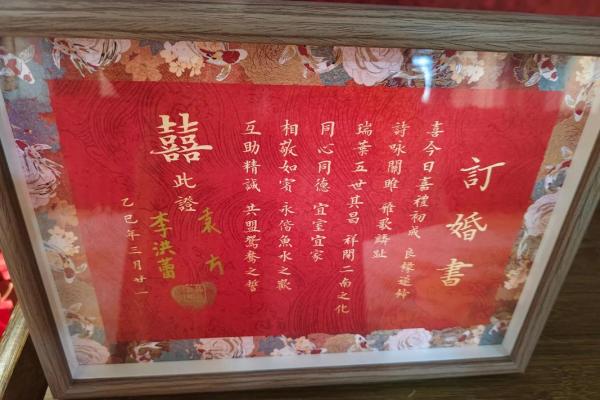 訂婚書
喜今日嘉禮初成 良緣遂締
詩咏關雎 雅歌麟趾
瑞葉五世其昌 祥開二南之化
同心同德 宜室宜家
相敬如賓 永偕魚水之歡
互助精誠 共盟鴛鴦之誓
囍
此證
袁
李洪蕾
乙巳年三月廿一